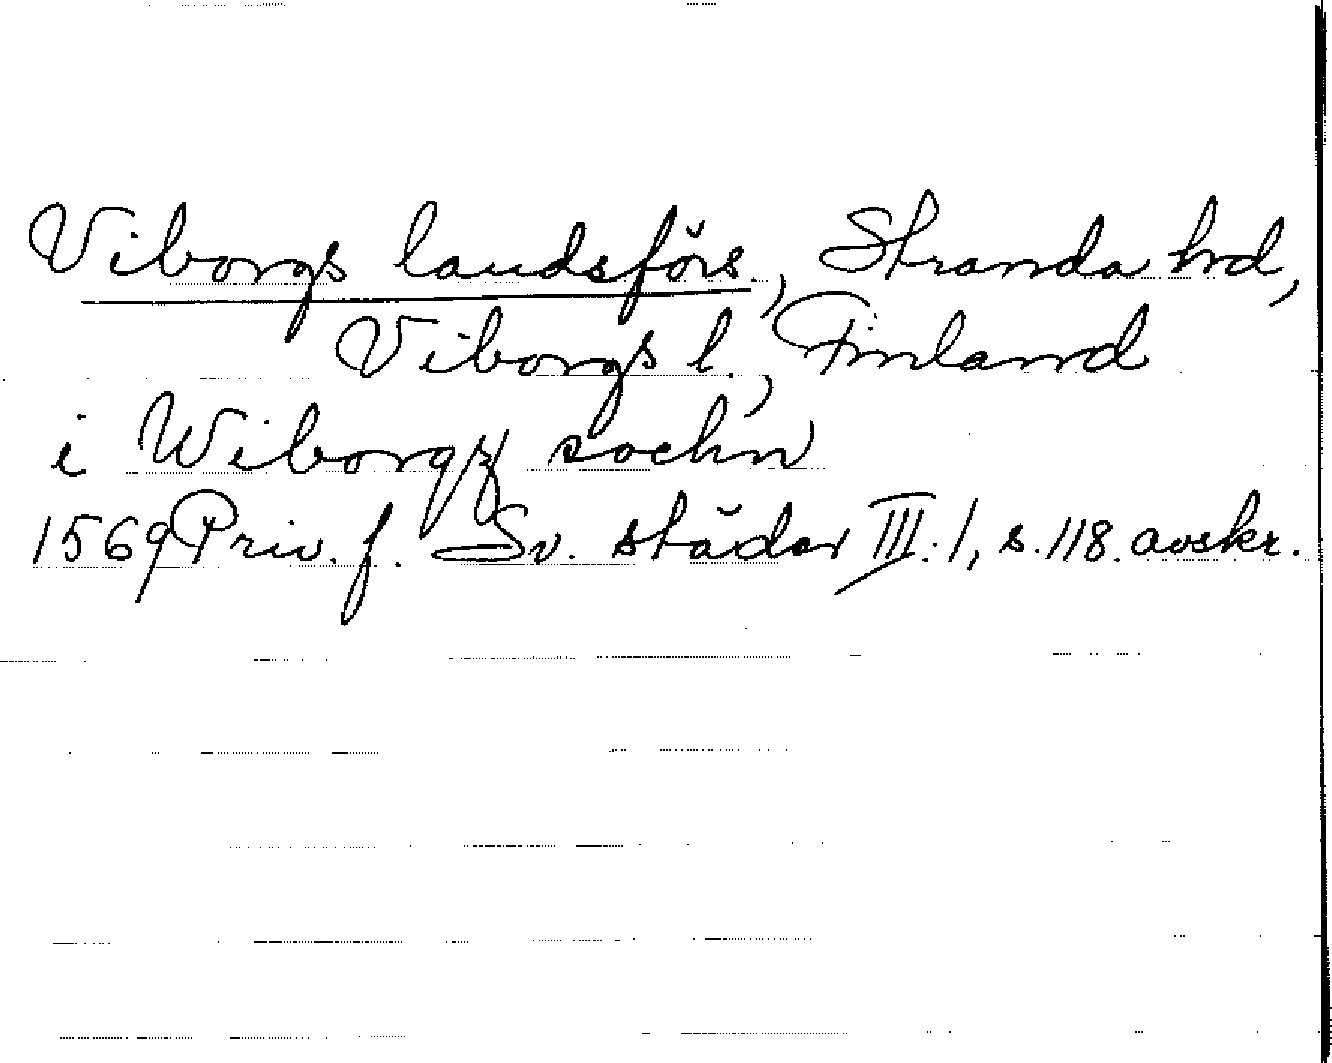 Viborgs landsförs., Stranda hrd,
Viborgs l., Finland
i Wiborgz sochn
1569 Priv. f. Sv. städer III:1, s. 118. avskr.